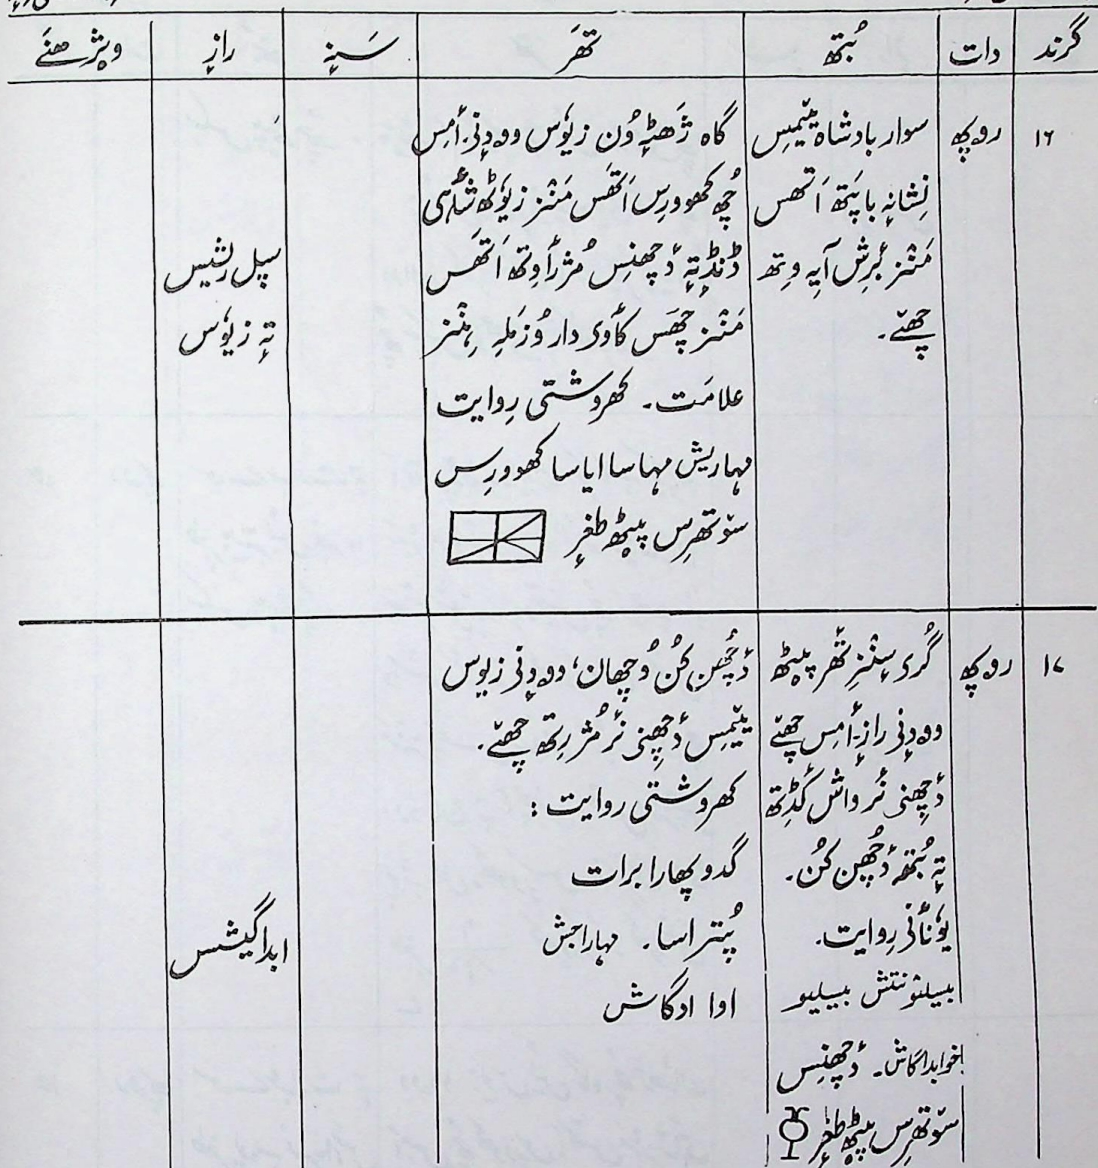 گرند دات بُتھ تھَر سَنہٕ رازٕ ویژھنَے
۱۶ روپھ
سوار بادشاہ یٔتیمِس
نِشانہٕ باپَتھ اَتھس
مَنٛز بُرِش آیہٕ وِتھ
چھےٚ۔
گاہ ژَھٹہٕ وُن زیوٗس وودٕنی۔ أمِس
چُھ کھوورِس اَتھَس مَنٛز زیوٗٹھ شٲہی
ڈنڈٕ تہٕ دٔچھنِس مُژرٲوِتھ اَتھَس
مَنٛز چھَس کٲوی دار وُزمَلہِ ہِنٛز
علامَت۔ کھروشتی رِوایت
مہاریش مہاسا ایاسا کھوورِس
سۆتھرِس پیٹھ طغرٕ
سپل رِشیس
تہٕ زیوٗس
۱۷ روپھ
گُرۍ سٕنٛزِ تھَر پیٹھ
وودٕنی رازٕ۔ أمِس چھےٚ
دٔچھنی نٔر واش کٔڈِتھ
تہٕ بُتھ دٔچھُن کُن۔
یوٗنٲنی رِوایت۔
بیسیلئونتش بیسیلیو
اخوابداکاش۔ دٔچھنِس
سۆتھرِس پیٹھ طغرٕ
دٔچھُن کُن وُچھان، وودٕنی زیوٗس
یٔتیمِس دٔچھنی نٔر مُژرِتھ چھےٚ۔
کھروشتی روایت:
گدو پھارا برات
پُتراسا۔ مہاراجش
اوا ادگاش
ابداگیشس